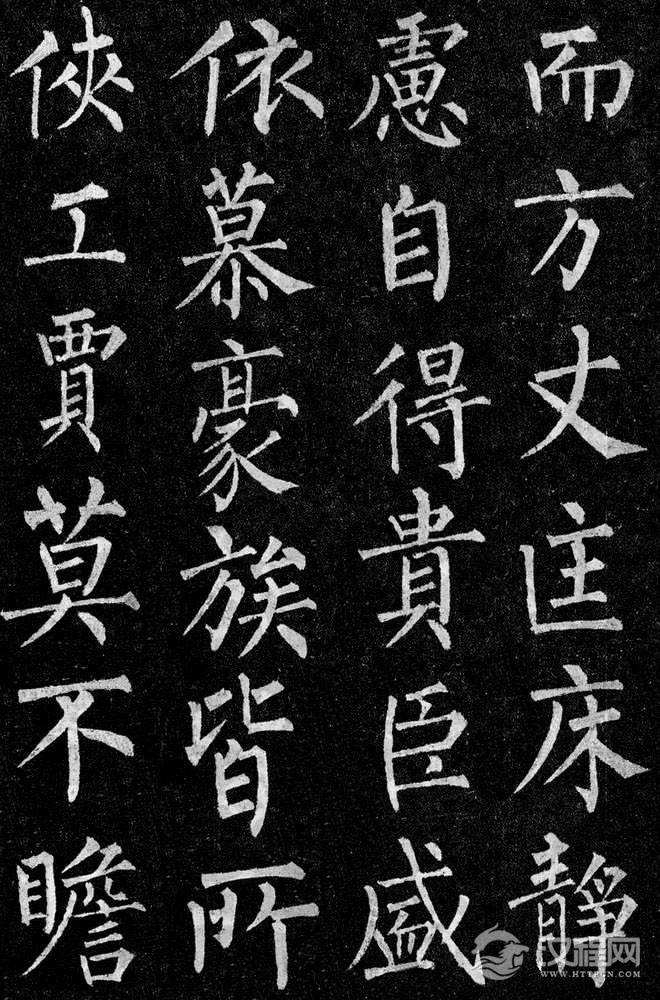 而方丈匡床靜
慮自得貴臣盛
依慕豪族皆所
俠工賈莫不瞻
汉程网
WWW.HTTPCN.COM